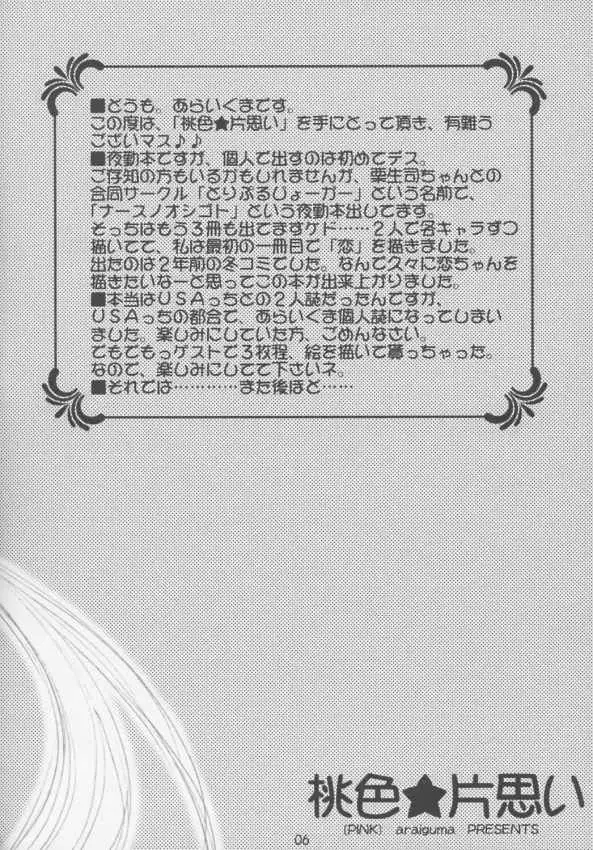 ■どうも。あらいぐまです。
この度は、「桃色★片思い」を手にとって頂き、有難う
ございマス♪♪
■夜勤本ですが、個人で出すのは初めてデス。
ご存知の方もいるかもしれませんが、栗生司ちゃんとの
合同サークル「とりぷるじょーガー」という名前で、
「ナースノオシゴト」という夜勤本出してます。
そっちはもう3冊も出てますケド……2人で各キャラずつ
描いてて、私は最初の一冊目で「恋」を描きました。
出たのは2年前の冬コミでした。なんで久々に恋ちゃんを
描きたいなーと思ってこの本が出来上がりました。
■本当はUSAっちとの2人誌だったんですが、
USAっちの都合で、あらいぐま個人誌になってしまい
ました。楽しみにしていた方、ごめんなさい。
でもでもっゲストで3枚程、絵を描いて貰っちゃった。
なので、楽しみにしてて下さいネ。
■それでは…………また後ほど……
桃色★片思い
(PINK) araiguma PRESENTS
06